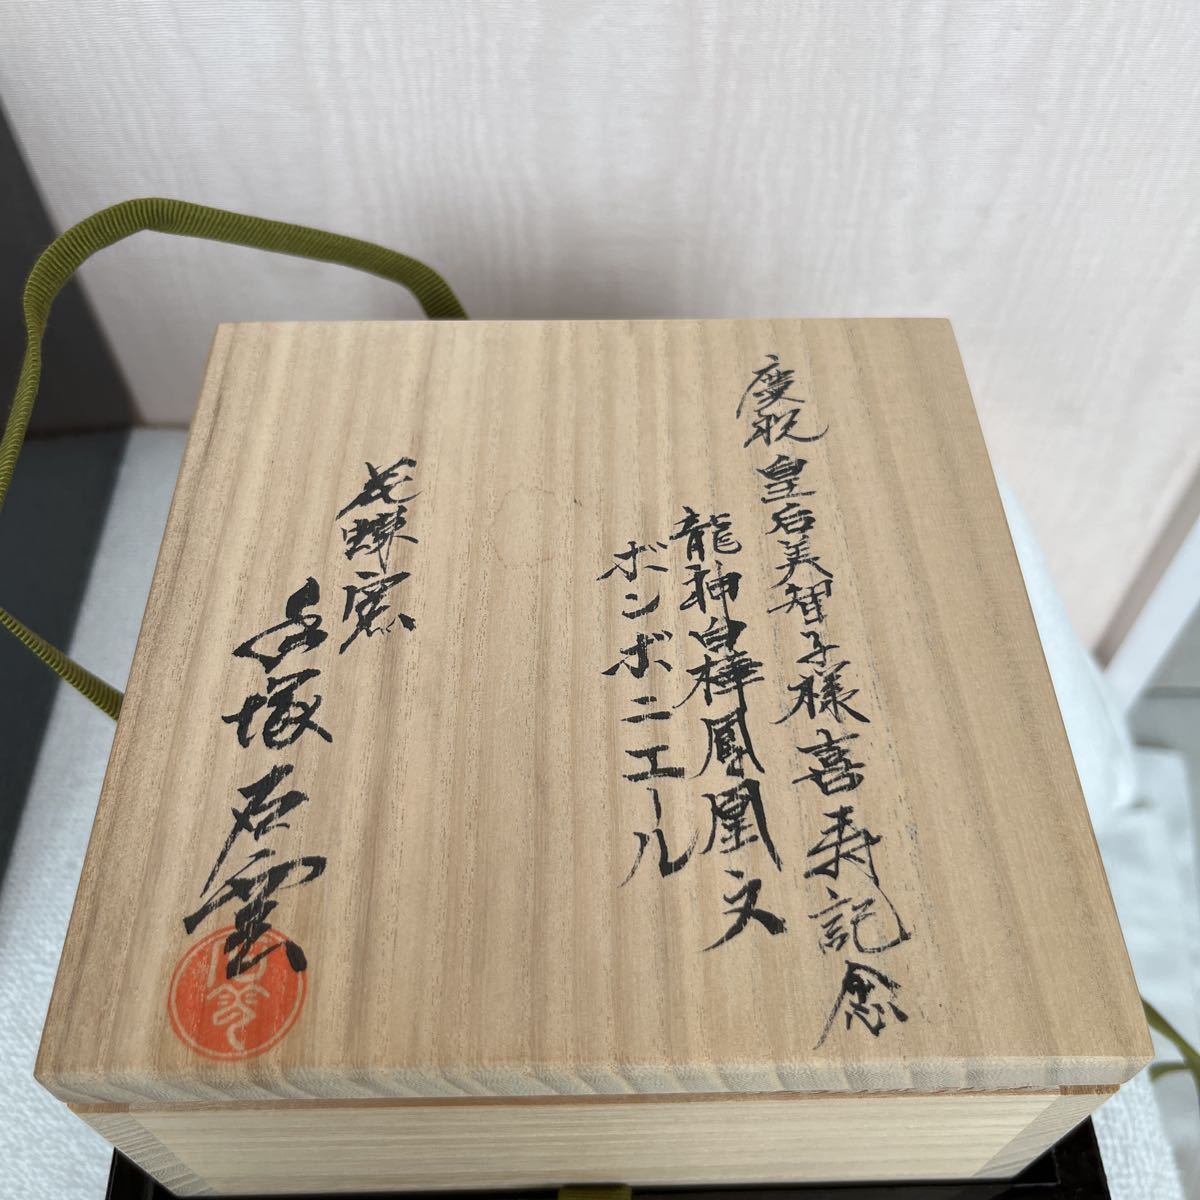 慶祝 皇后美智子様喜寿記念
龍神白樺鳳凰文
ボンボニエール
花蝶窯
手塚石雲
石雲